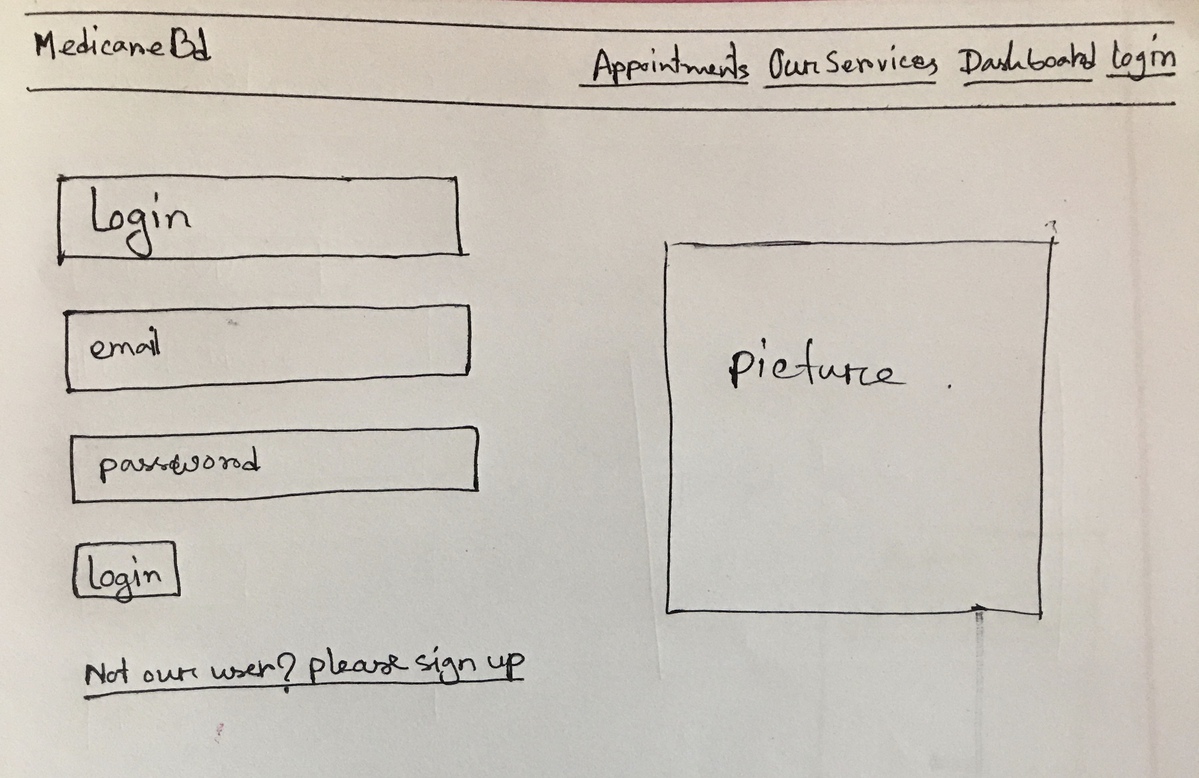 MedicaneBd
Appointments Our Services Dashboard Login
Login
email
password
Login
Not our user? please sign up
picture